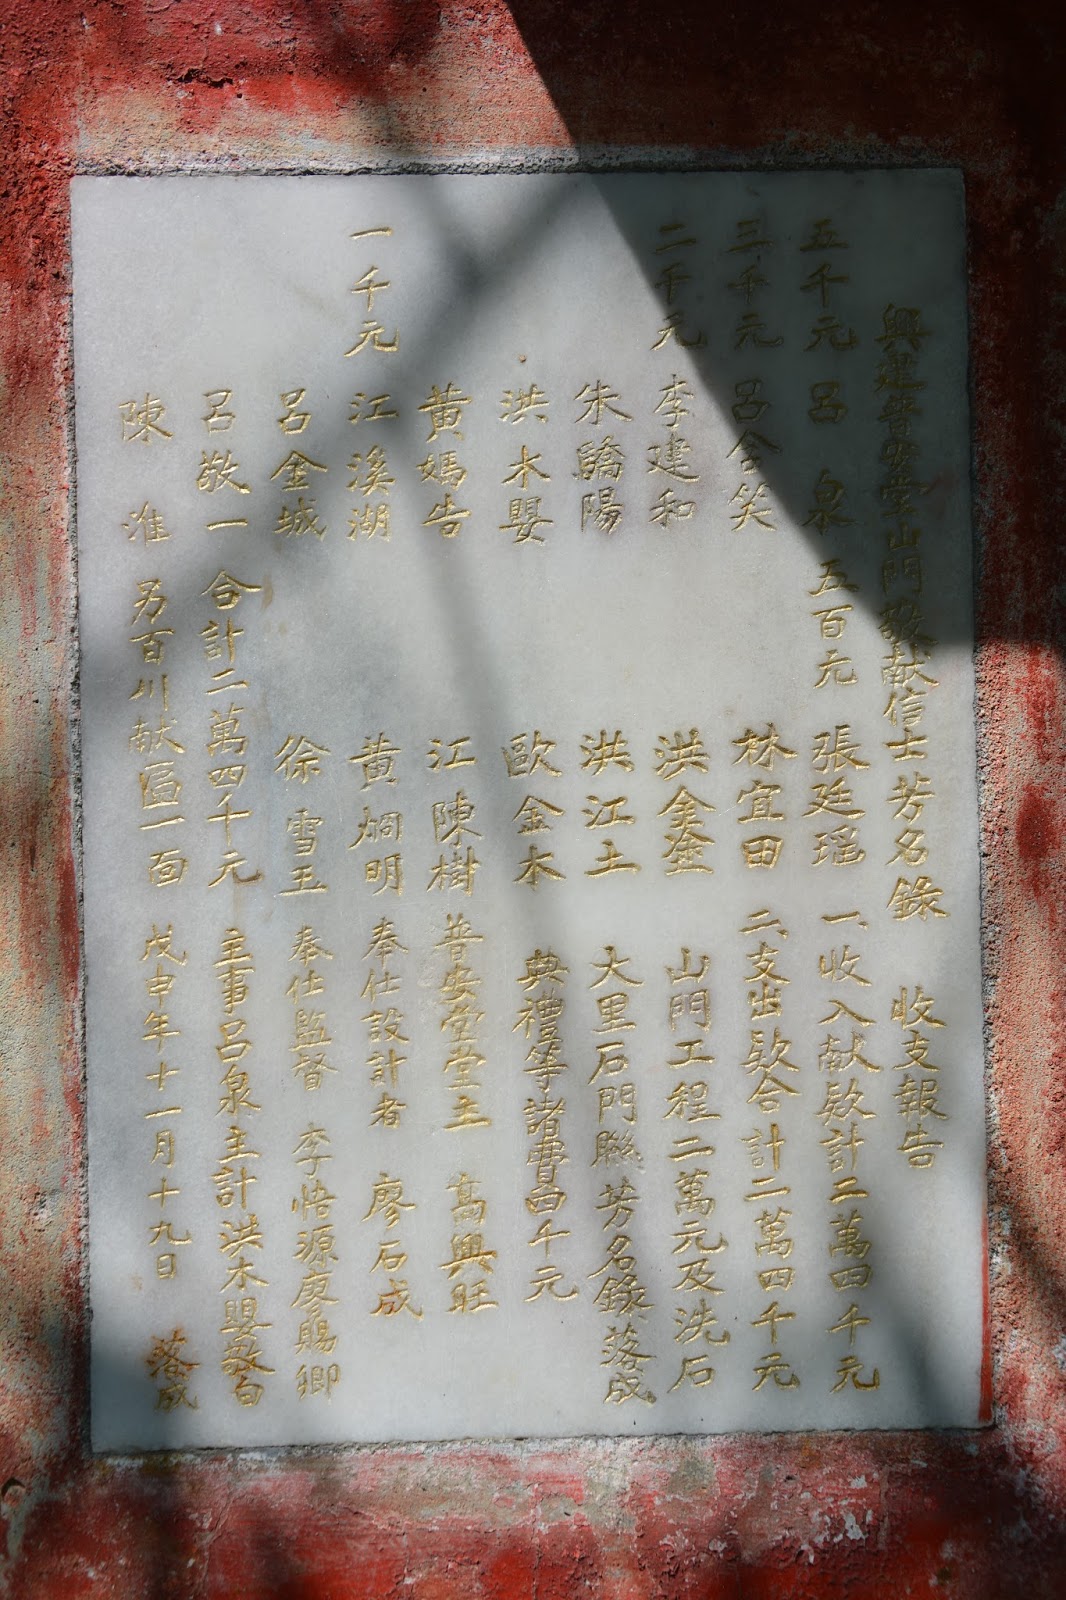 興建普安堂山門敬献信士芳名錄　收支報告
五千元　呂　泉　五百元　張廷瑶　一、收入献欵計二萬四千元
三千元　呂合笑　林宜田　二、支出欵合計二萬四千元
二千元　李建和　洪金釜　山門工程二萬元及洗石
朱驕陽　洪江土　大里石門聯芳名錄落成
洪木嬰　歐金木　典禮等諸費四千元
黃媽告　江陳樹　普安堂堂主　高興旺
一千元　江溪湖　黃烱明　奉仕設計者　廖石成
呂金城　徐雪玉　奉仕監督　李悟源廖賜卿
呂敬一　合計二萬四千元　主事呂泉主計洪木嬰敬白
陳　准　另百川献匾一面　戊申年十一月十九日　落成